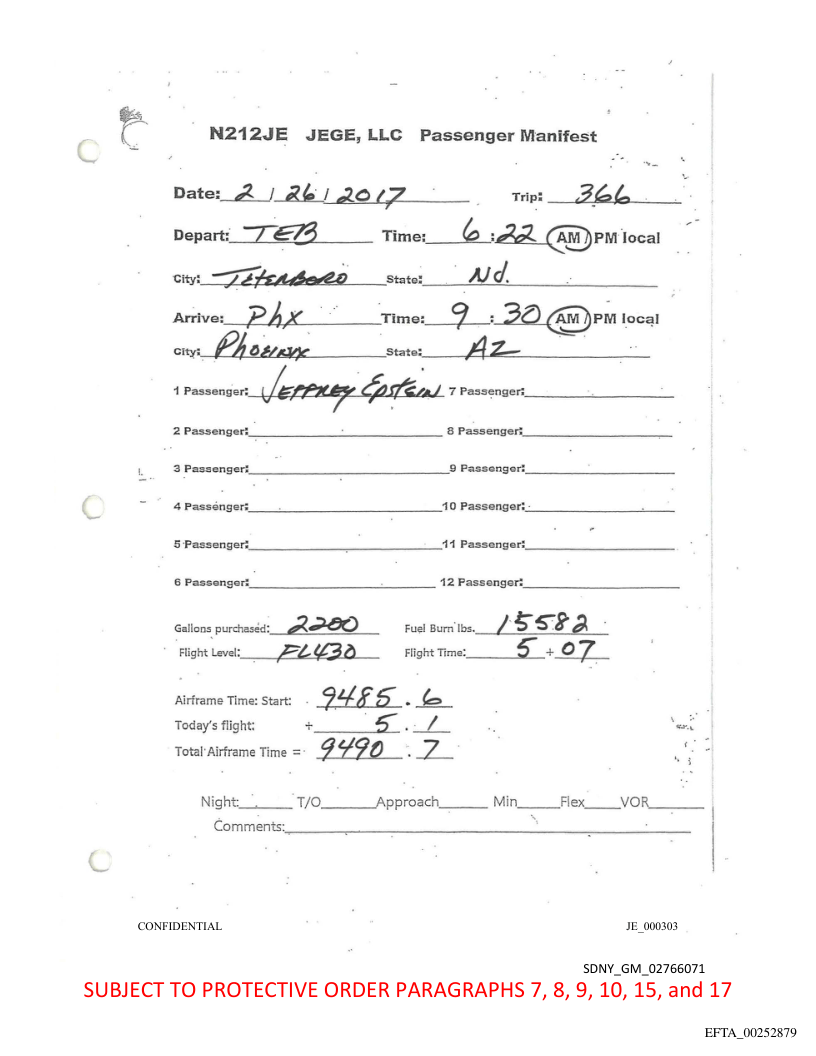 N212JE JEGE, LLC Passenger Manifest
Date: 2 / 26 / 2017 Trip: 366
Depart: TEB Time: 6 : 22 AM / PM local
City: Teterboro State: NJ.
Arrive: Phx Time: 9 : 30 AM / PM local
City: Phoenix State: AZ
1 Passenger: Jeffrey Epstein 7 Passenger:
2 Passenger: 8 Passenger:
3 Passenger: 9 Passenger:
4 Passenger: 10 Passenger:
5 Passenger: 11 Passenger:
6 Passenger: 12 Passenger:
Gallons purchased: 2200 Fuel Burn lbs. 15582
Flight Level: FL430 Flight Time: 5 + 07
Airframe Time: Start: 9485 . 6
Today's flight: + 5 . 1
Total Airframe Time = 9490 . 7
Night: T/O Approach Min Flex VOR
Comments:
CONFIDENTIAL JE_000303
SDNY_GM_02766071
SUBJECT TO PROTECTIVE ORDER PARAGRAPHS 7, 8, 9, 10, 15, and 17
EFTA_00252879